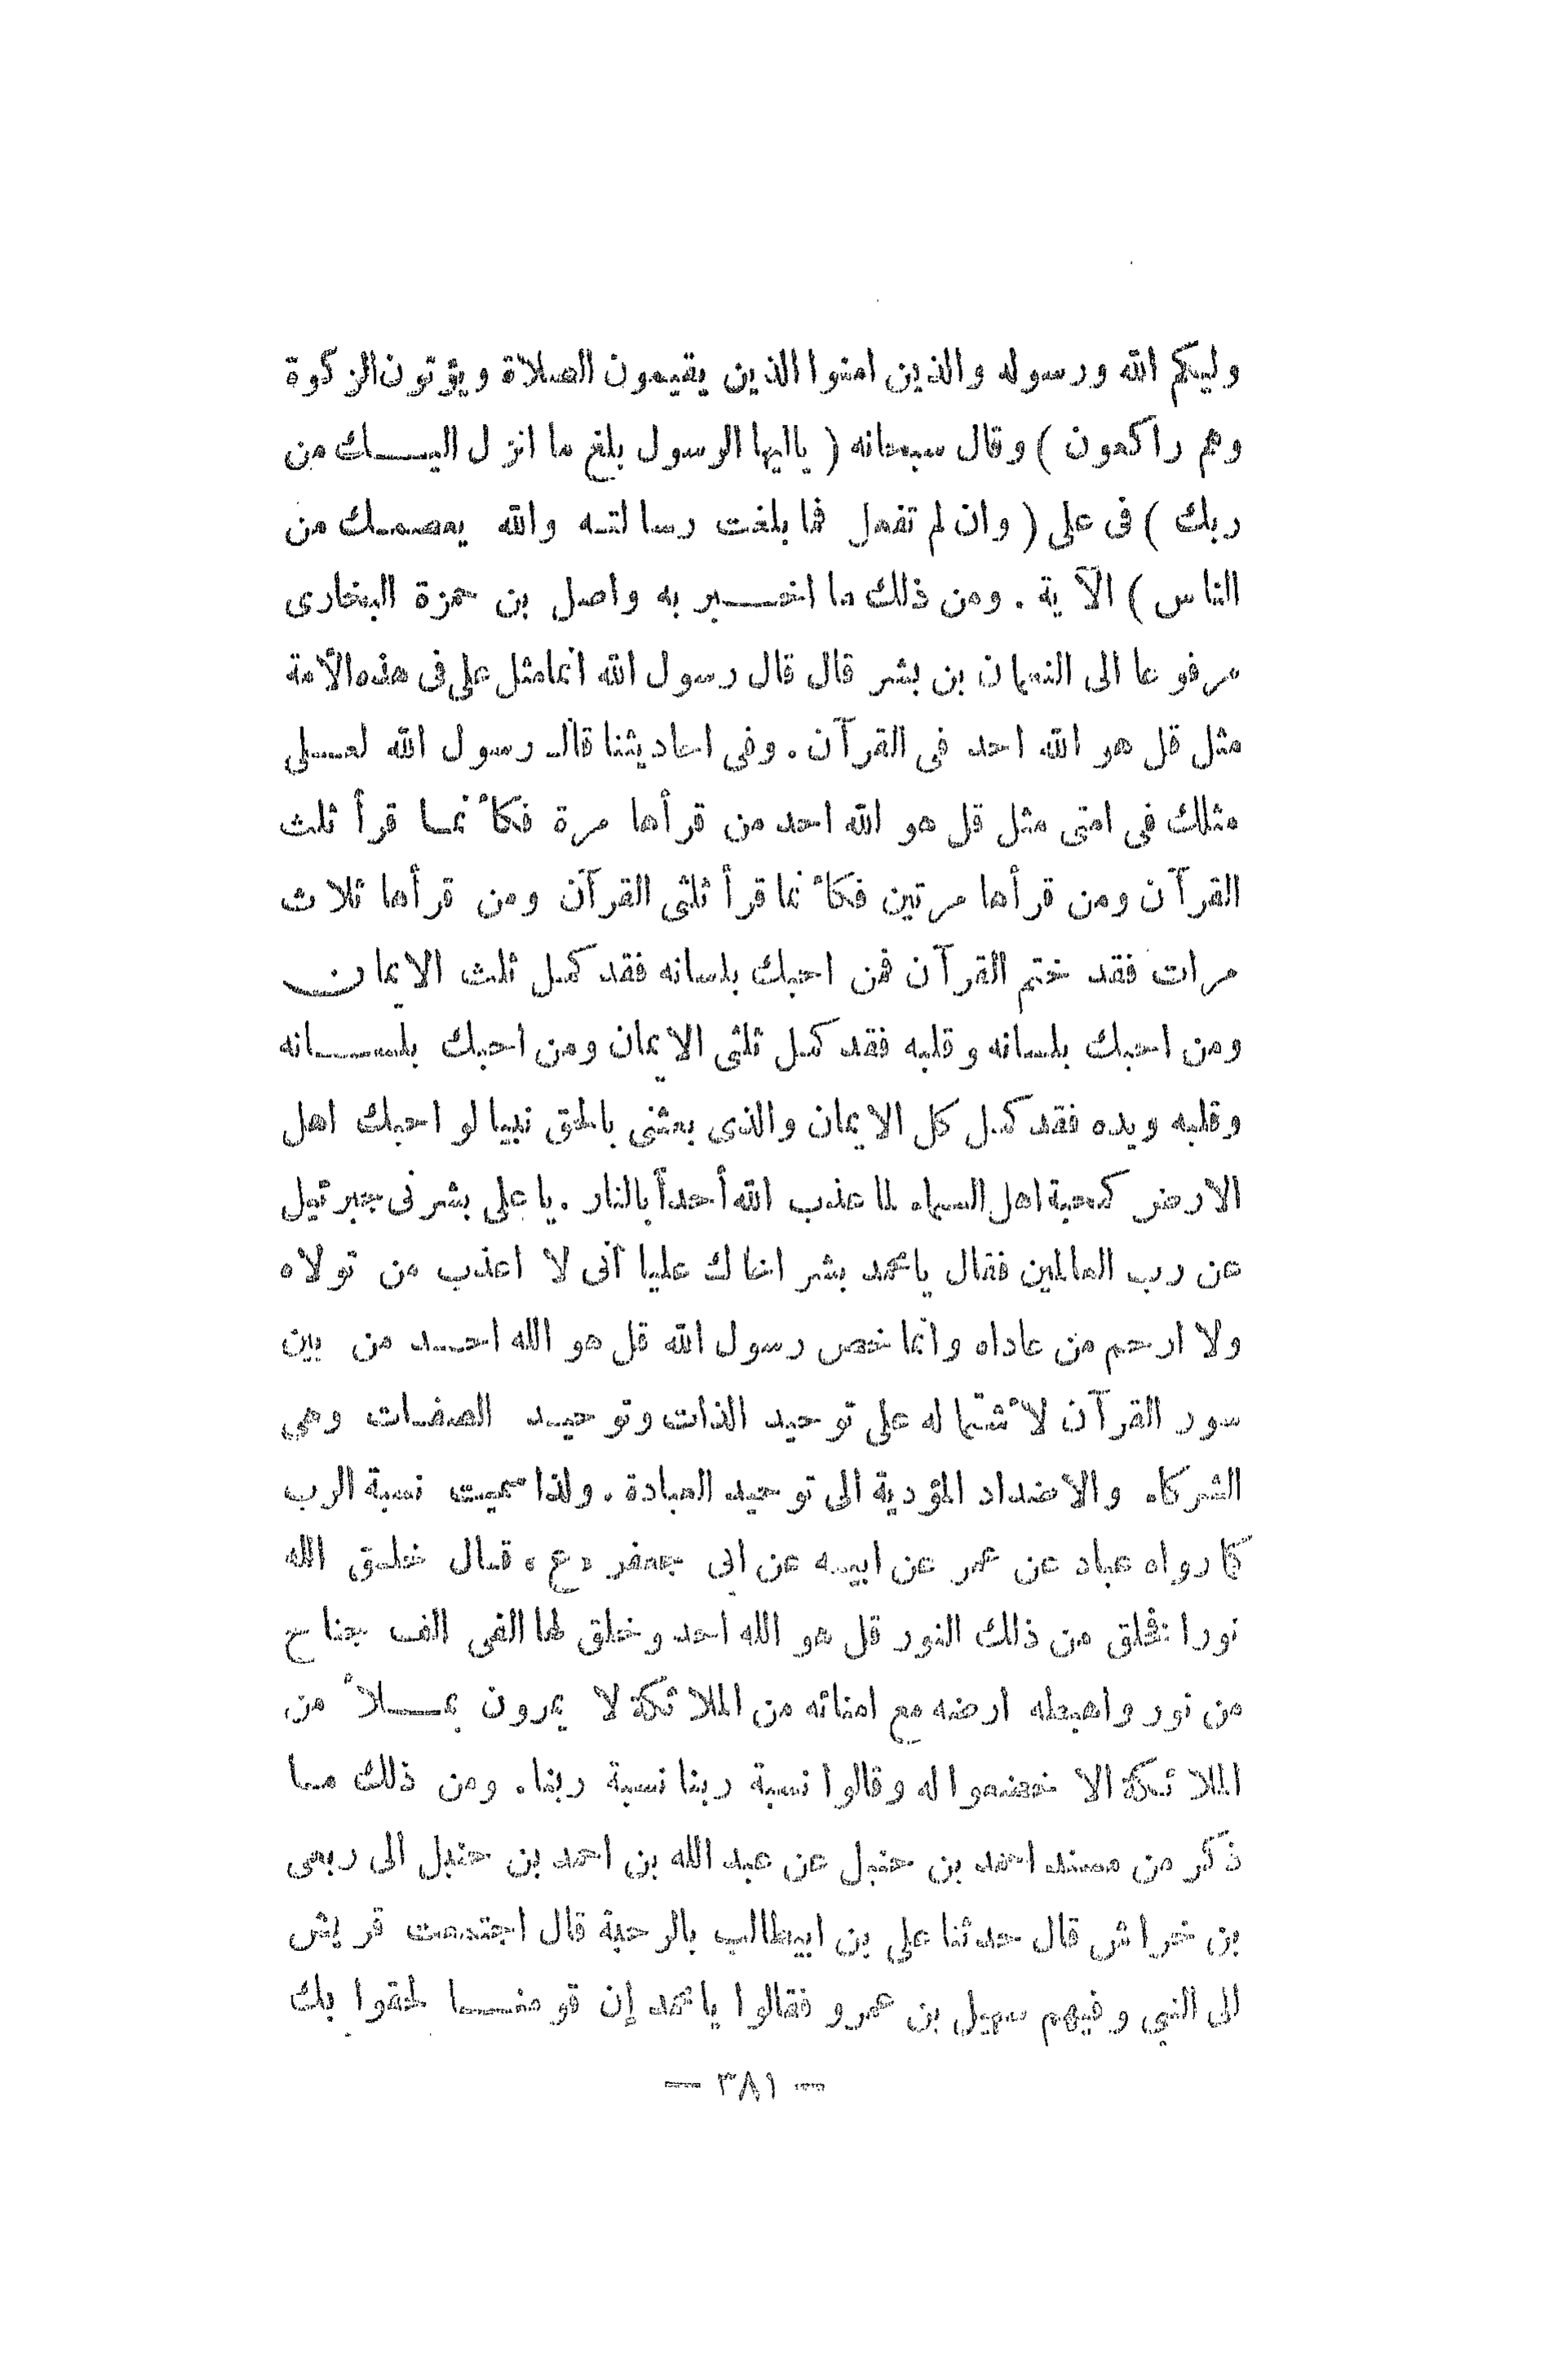 وليكم الله ورسوله والذين امنوا الذين يقيمون الصلاة ويؤتون الزكوة
وهم راكعون ) وقال سبحانه ( ياايها الرسول بلغ ما انزل اليـــك من
ربك ) فى على ( وان لم تفعل فما بلغت رسالتـه والله يعصمـك من
الناس ) الآية . ومن ذلك ما اخـــبر به واصل بن حمزة البخارى
مرفوعا الى النعمان بن بشر قال قال رسول الله انمامثل على فى هذه الأمة
مثل قل هو الله احد فى القرآن . وفى احاديثنا قال رسول الله لعـلى
مثلك فى امتى مثل قل هو الله احد من قرأها مرة فكأنمـا قرأ ثلث
القرآن ومن قرأها مرتين فكأنما قرأ ثلثى القرآن ومن قرأها ثلاث
مرات فقد ختم القرآن فمن احبك بلسانه فقد كمل ثلث الايمان
ومن احبك بلسانه وقلبه فقد كمل ثلثى الايمان ومن احبك بلســـانه
وقلبه ويده فقد كمل كل الايمان والذى بعثنى بالحق نبيا لو احبك اهل
الارض كمحبة اهل السماء لما عذب الله أحداً بالنار . يا على بشرنى جبرئيل
عن رب العالمين فقال يامحمد بشر اخاك عليا أنى لا اعذب من تولاه
ولا ارحم من عاداه وانما خص رسول الله قل هو الله احــد من بين
سور القرآن لأشتماله على توحيد الذات وتوحيـد الصفـات وهى
الشركاء والاضداد المؤدية الى توحيد العبادة . ولذا سميت نسبة الرب
كما رواه عباد عن عمر عن ابيـه عن ابى جعفر «ع» قـال خلـق الله
نورا فخلق من ذلك النور قل هو الله احد وخلق لها الفى الف جناح
من نور واهبطه ارضه مع امنائه من الملائكة لا يمرون بمـــلأ من
الملائكة الا خضعوا له وقالوا نسبة ربنا نسبة ربنا . ومن ذلك مـا
ذكر من مسند احمد بن حنبل عن عبد الله بن احمد بن حنبل الى ربعى
بن خراش قال حدثنا على بن ابيطالب بالرحبة قال اجتمعت قريش
الى النبى وفيهم سهيل بن عمرو فقالوا يامحمد إن قومنـــا لحقوا بك
— ٣٨١ —